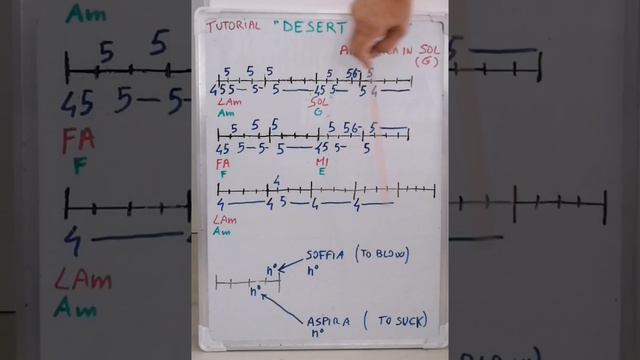 TUTORIAL "DESERT
IN SOL
(G)
5 5 5 5 56- 5
455- 5- 5 45 5- 54
LAm SOL
Am G
5 5 5 5 56- 5
45 5- 5- 5 45 5- 5
FA MI
F E
4
4 4 5 4 4
LAm
Am
n° SOFFIA (TO BLOW)
n°
n°
ASPIRA (TO SUCK)
n°
Am
5 5
45 5- 5
FA
F
4
LAm
Am
5